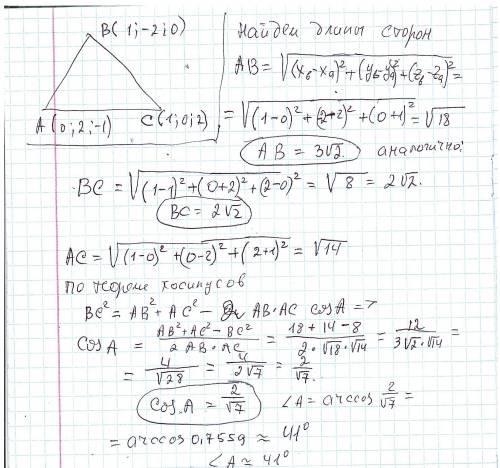 B(1;-2;0)
A(0;2;-1)
C(1;0;2)
Найдем длины сторон
AB = √((x₆-xₐ)²+(y₆-yₐ)²+(z₆-zₐ)²) =
= √((1-0)²+(2+2)²+(0+1)²) = √18
AB = 3√2. аналогично:
BC = √((1-1)²+(0+2)²+(2-0)²) = √8 = 2√2.
BC = 2√2
AC = √((1-0)²+(0-2)²+(2+1)²) = √14
по теореме косинусов
BC² = AB² + AC² - 2 AB·AC cosA =>
cosA = (AB²+AC²-BC²)/(2AB·AC) = (18+14-8)/(2·√18·√14) = 12/(3√2·√14) =
= 4/√28 = 4/(2√7) = 2/√7.
cosA = 2/√7 ∠A = arccos 2/√7 =
= arccos 0,7559 ≈ 41°
∠A ≈ 41°